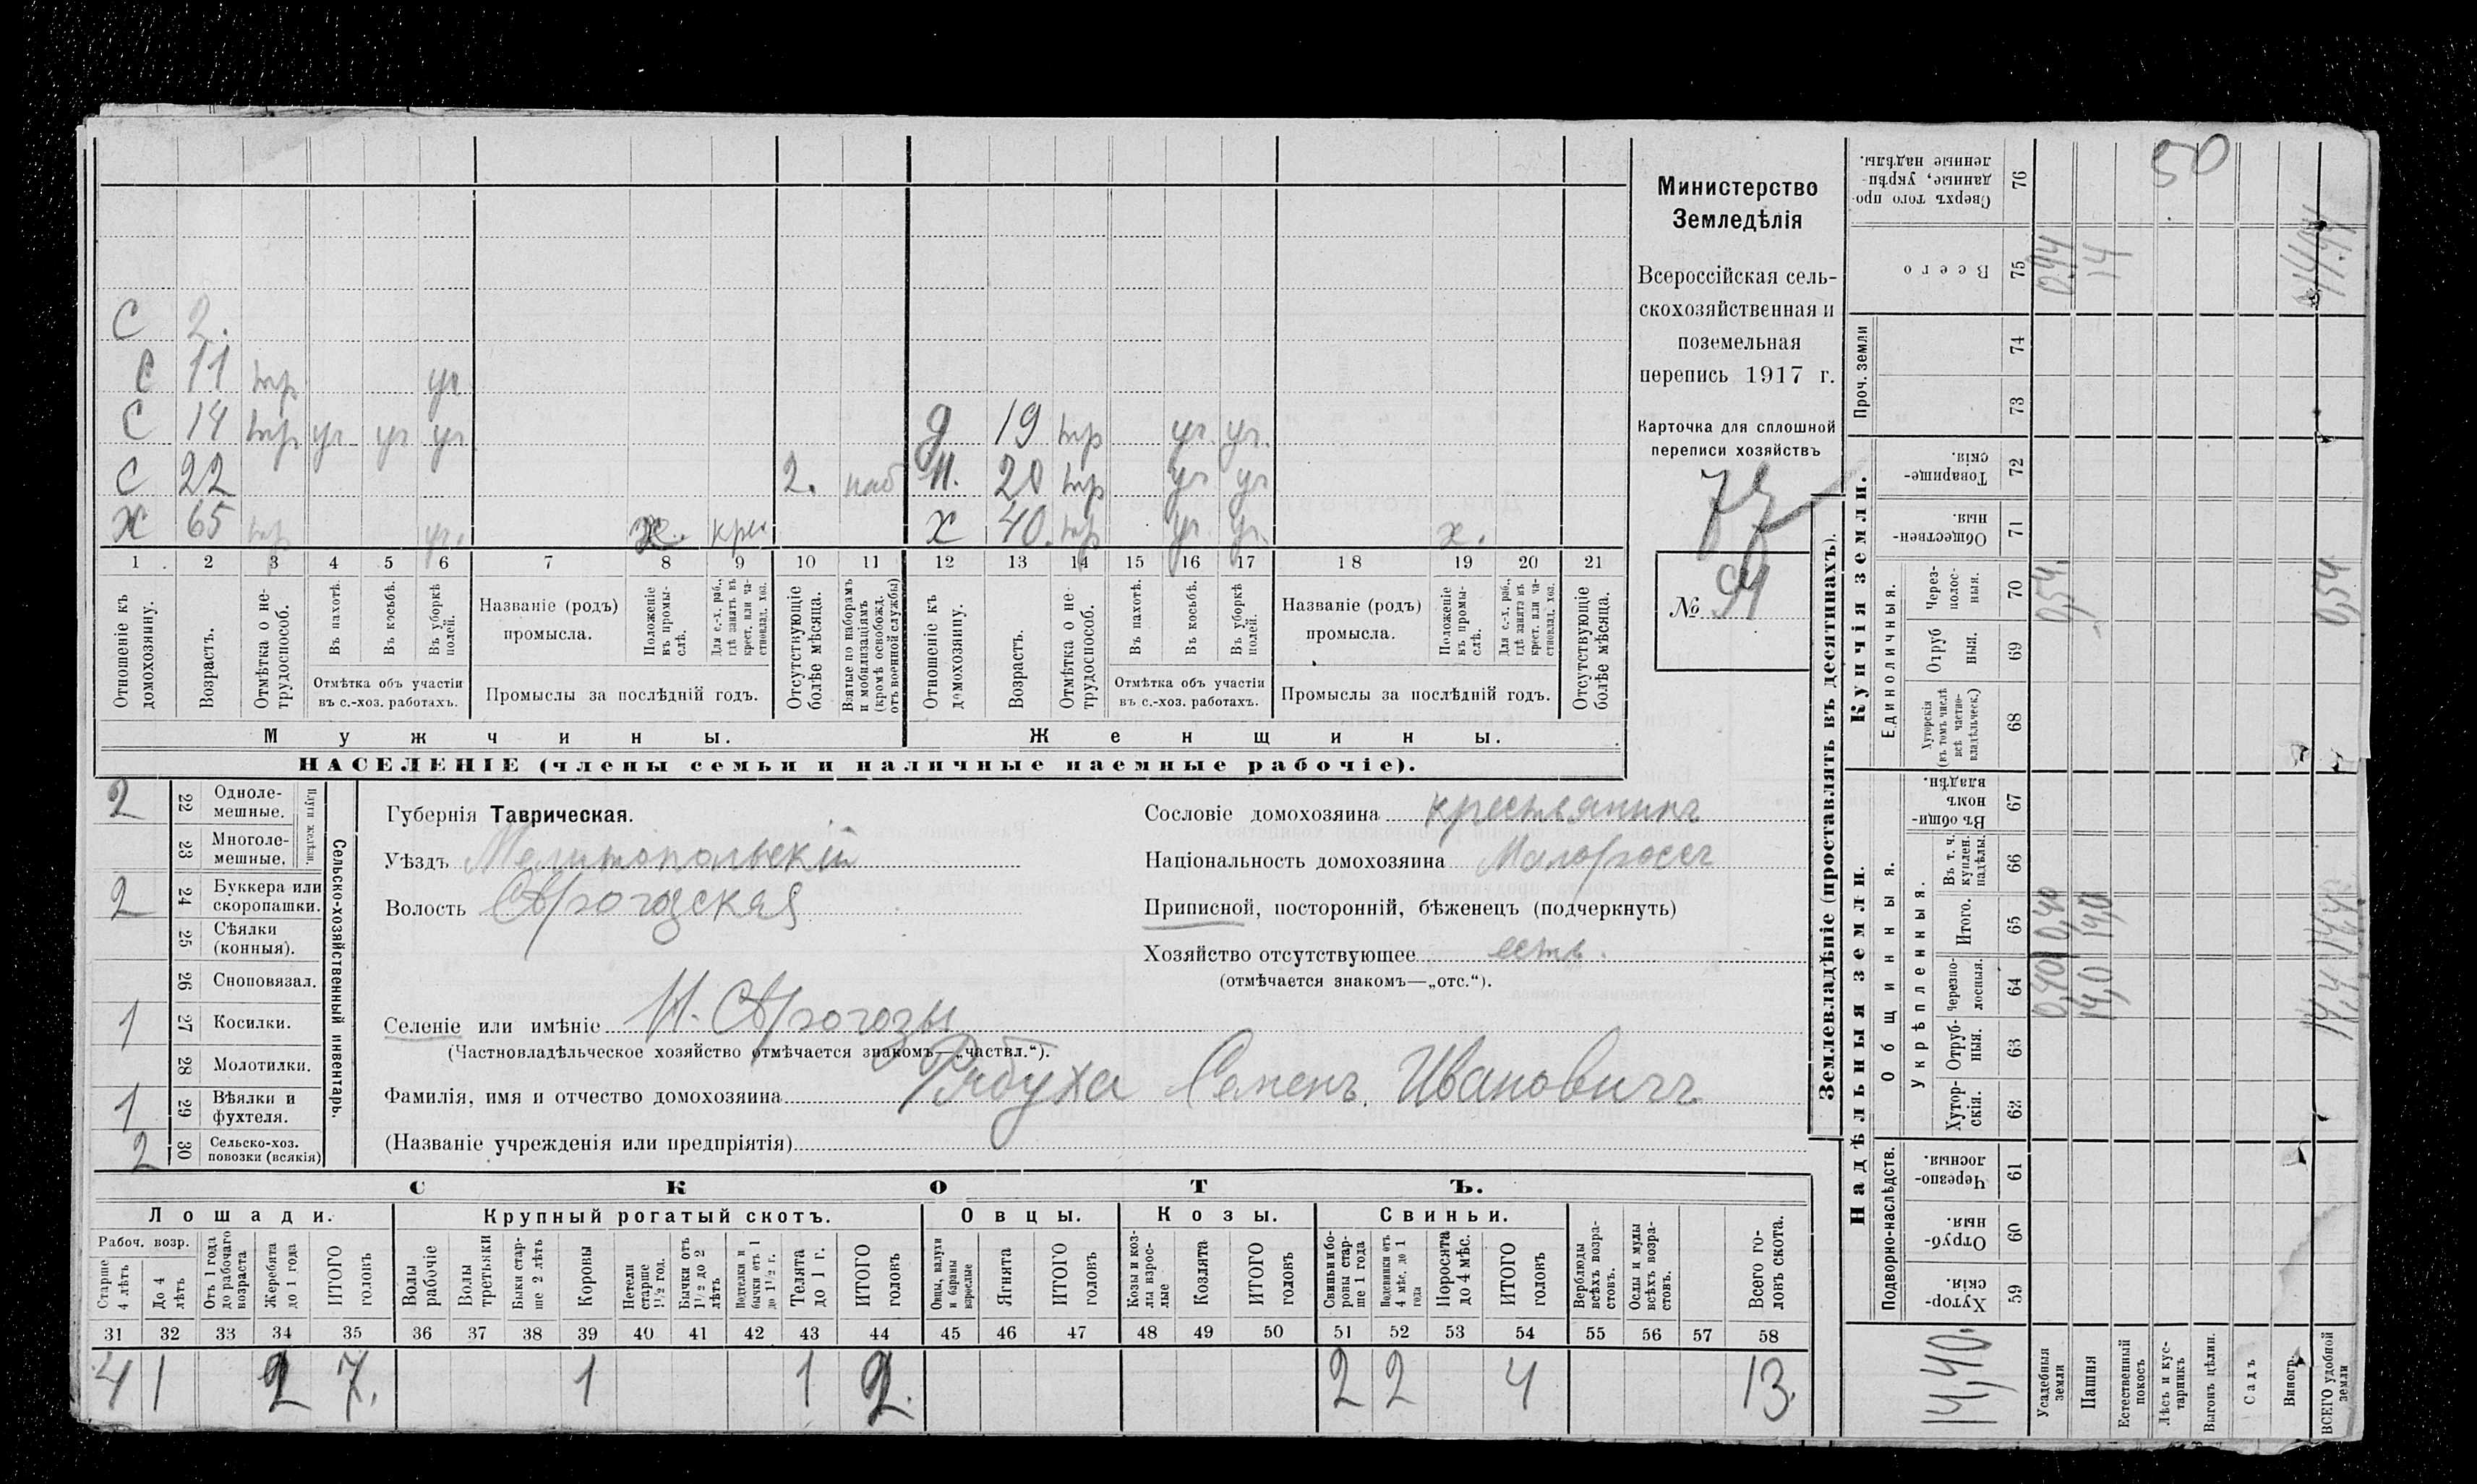 С 2.
С 11 нтр уч
С 14 нтр уч уч уч
Д 19 нтр уч. уч.
С 22 2. наб
Н. 20 нтр уч уч
Х 65 нтр уч. х. крес
Х 40. нтр уч. уч. х.
1 2 3 4 5 6 7 8 9 10 11 12 13 14 15 16 17 18 19 20 21
Отношеніе къ домохозяину.
Возрастъ.
Отмѣтка о нетрудоспособ.
Въ пахотѣ.
Въ косьбѣ.
Въ уборкѣ полей.
Отмѣтка объ участіи
въ с.-хоз. работахъ.
Названіе (родъ)
промысла.
Положеніе въ промыслѣ.
Для с.-х. раб., гдѣ занятъ въ крест. или частновлад. хоз.
Промыслы за послѣдній годъ.
Отсутствующіе болѣе мѣсяца.
Взятые по наборамъ и мобилизаціямъ (кромѣ освобожд. отъ военной службы)
Отношеніе къ домохозяину.
Возрастъ.
Отмѣтка о нетрудоспособ.
Въ пахотѣ.
Въ косьбѣ.
Въ уборкѣ полей.
Отмѣтка объ участіи
въ с.-хоз. работахъ.
Названіе (родъ)
промысла.
Положеніе въ промыслѣ.
Для с.-х. раб., гдѣ занятъ въ крест. или частновлад. хоз.
Промыслы за послѣдній годъ.
Отсутствующіе болѣе мѣсяца.
Мужчины.
Женщины.
НАСЕЛЕНІЕ (члены семьи и наличные наемные рабочіе).
Министерство
Земледѣлія
Всероссійская сель-
скохозяйственная и
поземельная
перепись 1917 г.
Карточка для сплошной
переписи хозяйствъ
№ 94
2 22 Однолемешные.
23 Многолемешные.
Плуги желѣзн.
2 24 Буккера или скоропашки.
25 Сѣялки (конныя).
26 Сноповязал.
1 27 Косилки.
28 Молотилки.
1 29 Вѣялки и фухтеля.
2 30 Сельско-хоз. повозки (всякія)
Сельско-хозяйственный инвентарь.
Губернія Таврическая.
Уѣздъ Мелитопольскій
Волость
Сословіе домохозяина крестьянинъ
Національность домохозяина Малороссъ
Приписной, посторонній, бѣженецъ (подчеркнуть)
Хозяйство отсутствующее есть.
(отмѣчается знакомъ—„отс.“).
Селеніе или имѣніе
(Частновладѣльческое хозяйство отмѣчается знакомъ—„частвл.“).
Фамилія, имя и отчество домохозяина Рябуха Семенъ Ивановичъ
(Названіе учрежденія или предпріятія)
СКОТЪ.
Лошади. Крупный рогатый скотъ. Овцы. Козы. Свиньи.
Рабоч. возр.
Старше 4 лѣтъ
До 4 лѣтъ
Отъ 1 года до рабочаго возраста
Жеребята до 1 года
ИТОГО головъ
Волы рабочіе
Волы третьяки
Быки старше 2 лѣтъ
Коровы
Нетели старше 1½ год.
Бычки отъ 1½ до 2 лѣтъ
Подтелки и бычки отъ 1 до 1½ г.
Телята до 1 г.
ИТОГО головъ
Овцы, валухи и бараны взрослые
Ягнята
ИТОГО головъ
Козы и козлы взрослые
Козлята
ИТОГО головъ
Свиньи и боровы старше 1 года
Подсвинки отъ 4 мѣс. до 1 года
Поросята до 4 мѣс.
ИТОГО головъ
Верблюды всѣхъ возрастовъ.
Ослы и мулы всѣхъ возрастовъ.
Всего головъ скота.
31 32 33 34 35 36 37 38 39 40 41 42 43 44 45 46 47 48 49 50 51 52 53 54 55 56 57 58
4 1 2 7. 1 1 2. 2 2 4 13.
Землевладѣніе (проставлять въ десятинахъ).
Надѣльныя земли. Купчія земли.
Подворно-наслѣдств.
Общинныя.
Укрѣпленныя.
Единоличныя.
Проч. земли
Хуторскія. 59
Отрубныя. 60
Черезполосныя. 61
Хуторскія. 62
Отрубныя. 63
Черезполосныя. 64
Итого. 65
Въ т. ч. куплен. надѣлы. 66
Въ общинномъ владѣн. 67
Хуторскія (въ томъ числѣ всѣ частновладѣльческ.) 68
Отрубныя. 69
Черезполосныя. 70
Общественныя. 71
Товарищескія. 72
73
74
Всего 75
Сверхъ того проданные, укрѣпленные надѣлы. 76
14,40.
Усадебныя земли 0,40 0,40 0,54. 0,94
Пашня 14,0 14,0 14
Естественный покосъ
Лѣсъ и кустарникъ 50
Выгонъ цѣлин.
Садъ
Виногр.
ВСЕГО удобной земли 14,4 14,40 0,54